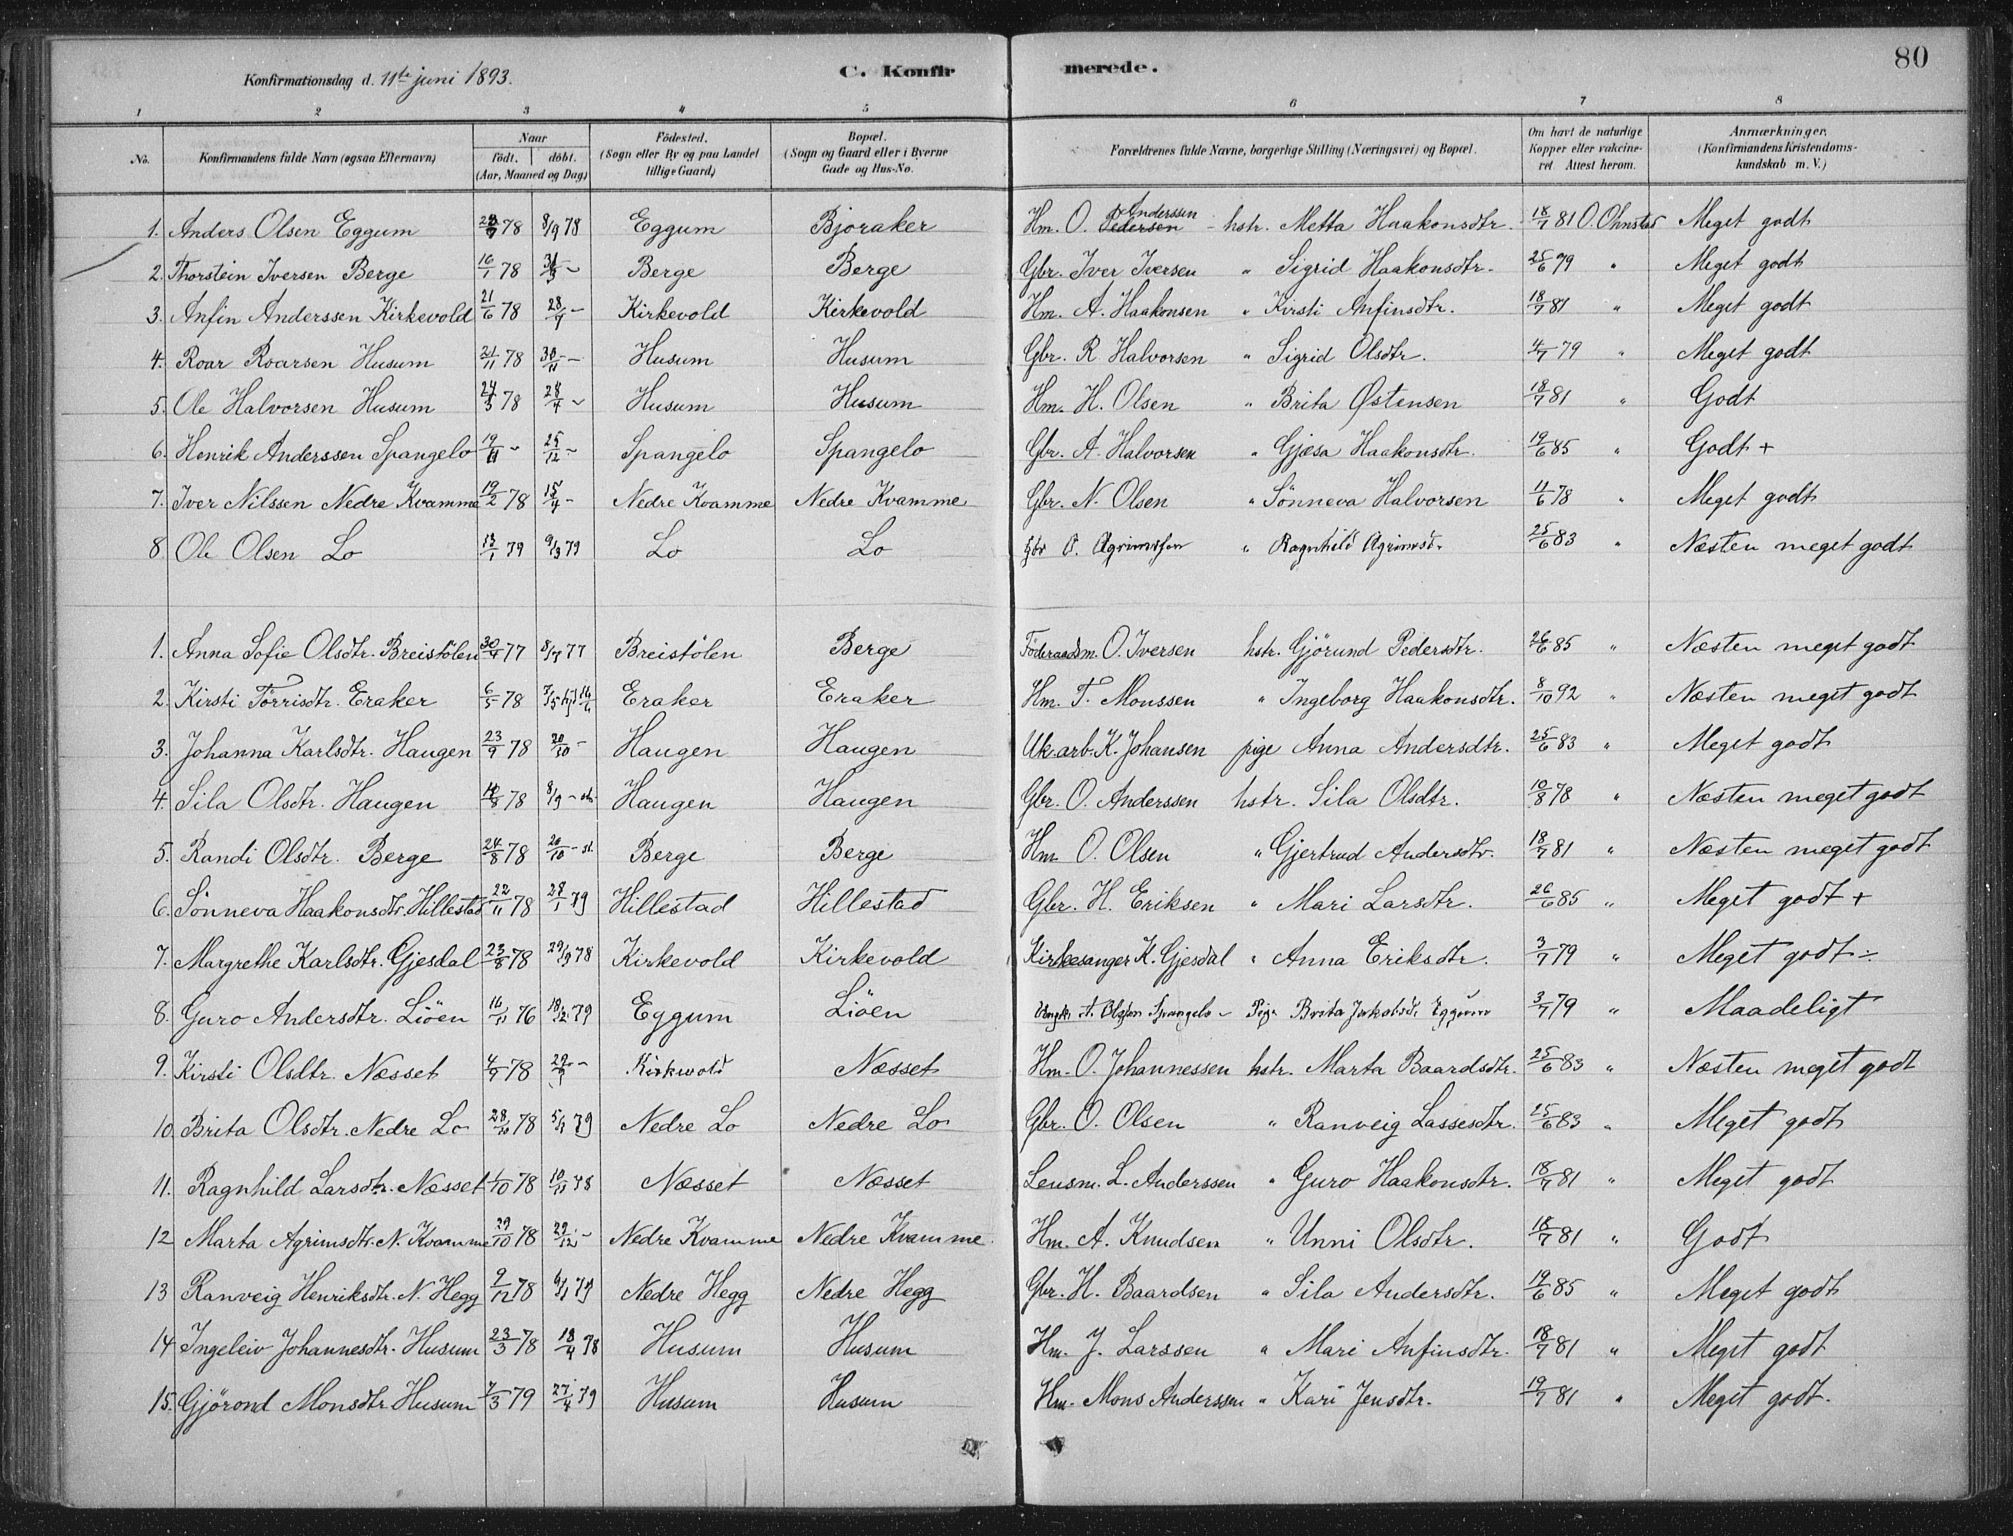 80
Konfirmationsdag d. 11te juni 1893. C. Konfir merede.
1 2 3 4 5 6 7 8
No. Konfirmandens fulde Navn (ogsaa Efternavn) Naar født. døbt. (Aar, Maaned og Dag) Fødested. (Sogn eller By og paa Landet tillige Gaard) Bopæl. (Sogn og Gaard eller i Byerne Gade og Hus-No. Forældrenes fulde Navne, borgerlige Stilling (Næringsvei) og Bopæl. Om havt de naturlige Kopper eller vakcineret Attest herom. Anmærkninger. (Konfirmandens Kristendomskundskab m. V.)
1. Anders Olsen Eggum 78 8/9 78 Eggum Bjoraker Hm. O. Pedersen Anderssen - hstr. Metta Haakonsdtr. 18/7 81 O. Ohnstad Meget godt
2. Thorstein Iversen Berge 16/1 78 31/3 - Berge Berge Gbr. Iver Iversen " Sigrid Haakonsdtr. 25/6 79 " Meget godt
3. Anfin Anderssen Kirkevold 21/6 78 28/7 - Kirkevold Kirkevold Hm. A. Haakonsen " Kirsti Anfinsdtr. 18/7 81 " Meget godt
4. Roar Roarsen Husum 21/11 78 30/11 - Husum Husum Gbr. R Halvorsen " Sigrid Olsdtr. 4/7 79 " Meget godt
5. Ole Halvorsen Husum 24/3 78 28/4 - Husum Husum Hm. H. Olsen " Brita Østensen 18/7 81 " Godt
6. Henrik Anderssen Spangelo 19/11 - 25/12 - Spangelo Spangelo Gbr. A. Halvorsen " Gjæsa Haakonsdtr. 19/6 85 " Godt +
7. Iver Nilssen Nedre Kvamme 19/2 78 15/4 - Nedre Kvamme Nedre Kvamme Gbr. N. Olsen " Sönneva Halvorsen 11/6 78 " Meget godt
8. Ole Olsen Lo 13/1 79 9/3 79 Lo Lo Gbr O. Agrimssen " Ragnhild Agrimsd. 25/6 83 " Næsten meget godt
1. Anna Sofie Olsdtr. Breistölen 30/4 77 8/7 77 Breistölen Berge Föderaadsm. O. Iversen hstr. Gjörund Pedersdtr. 26/6 85 " Næsten meget godt
2. Kirsti Törrisdtr. Eraker 6/5 78 7/5 Eraker Eraker Hm. T. Monssen " Ingeborg Haakonsdtr. 8/10 92 " Næsten meget godt
3. Johanna Karlsdtr. Haugen 23/9 78 20/10 - Haugen Haugen Uk. arb. K. Johansen pige Anna Andersdtr. 25/6 83 " Meget godt
4. Sila Olsdtr. Haugen 78 8/9 - Haugen Haugen Gbr. O. Anderssen hstr. Sila Olsdtr. 10/8 78 " Næsten meget godt
5. Randi Olsdtr. Berge 24/8 78 20/10 - Berge Berge Hm O. Olsen " Gjertrud Andersdtr. 18/7 81 " Næsten meget godt
6. Sönneva Haakonsdtr. Hillestad 22/11 78 28/1 79 Hillestad Hillestad Gbr. H. Eriksen " Mari Larsdtr. 26/6 85 " Meget godt +
7. Margrethe Karlsdtr. Gjesdal 23/8 78 29/9 78 Kirkevold Kirkevold Kirkesanger K. Gjesdal " Anna Eriksdtr. 3/7 79 " Meget godt ÷
8. Guro Andersdtr. Liöen 16/11 76 18/12 79 Eggum Liöen Ungk. A. Olsson Spangelo - Pige Brita Jakobsd. Eggum 3/7 79 " Maadeligt
9. Kirsti Olsdtr. Næsset 4/9 78 29/9 - Kirkevold Næsset Hm. O. Johannessen hstr. Marta Baardsdtr. 25/6 83 " Næsten meget godt
10. Brita Olsdtr. Nedre Lo 28/10 78 5/1 79 Nedre Lo Nedre Lo Gbr. O. Olsen " Ranveig Lassesdtr. 25/6 83 " Meget godt
11. Ragnhild Larsdtr. Næsset 1/10 78 10/11 78 Næsset Næsset Lensm. L. Anderssen " Guro Haakonsdtr. 18/7 81 " Meget godt
12 Marta Agrimsdtr. N. Kvamme 29/10 78 29/12 - Nedre Kvamme Nedre Kvamme Hm. A. Knudsen " Unni Olsdtr. 18/7 81 " Godt
13 Ranveig Henriksdtr. N. Hegg 9/12 78 6/1 79 Nedre Hegg Nedre Hegg Gbr. H. Baardsen " Sila Andersdtr. 19/6 85 " Meget godt
14 Ingeleiv Johannesdtr. Husum 23/3 78 18/4 78 Husum Husum Hm. J. Larssen " Mari Anfinsdtr. 18/7 81 " Meget godt
15. Gjörond Monsdtr. Husum 7/3 79 27/4 79 Husum Husum Hm. Mons Anderssen " Kari Jensdtr. 19/7 81 " Meget godt.